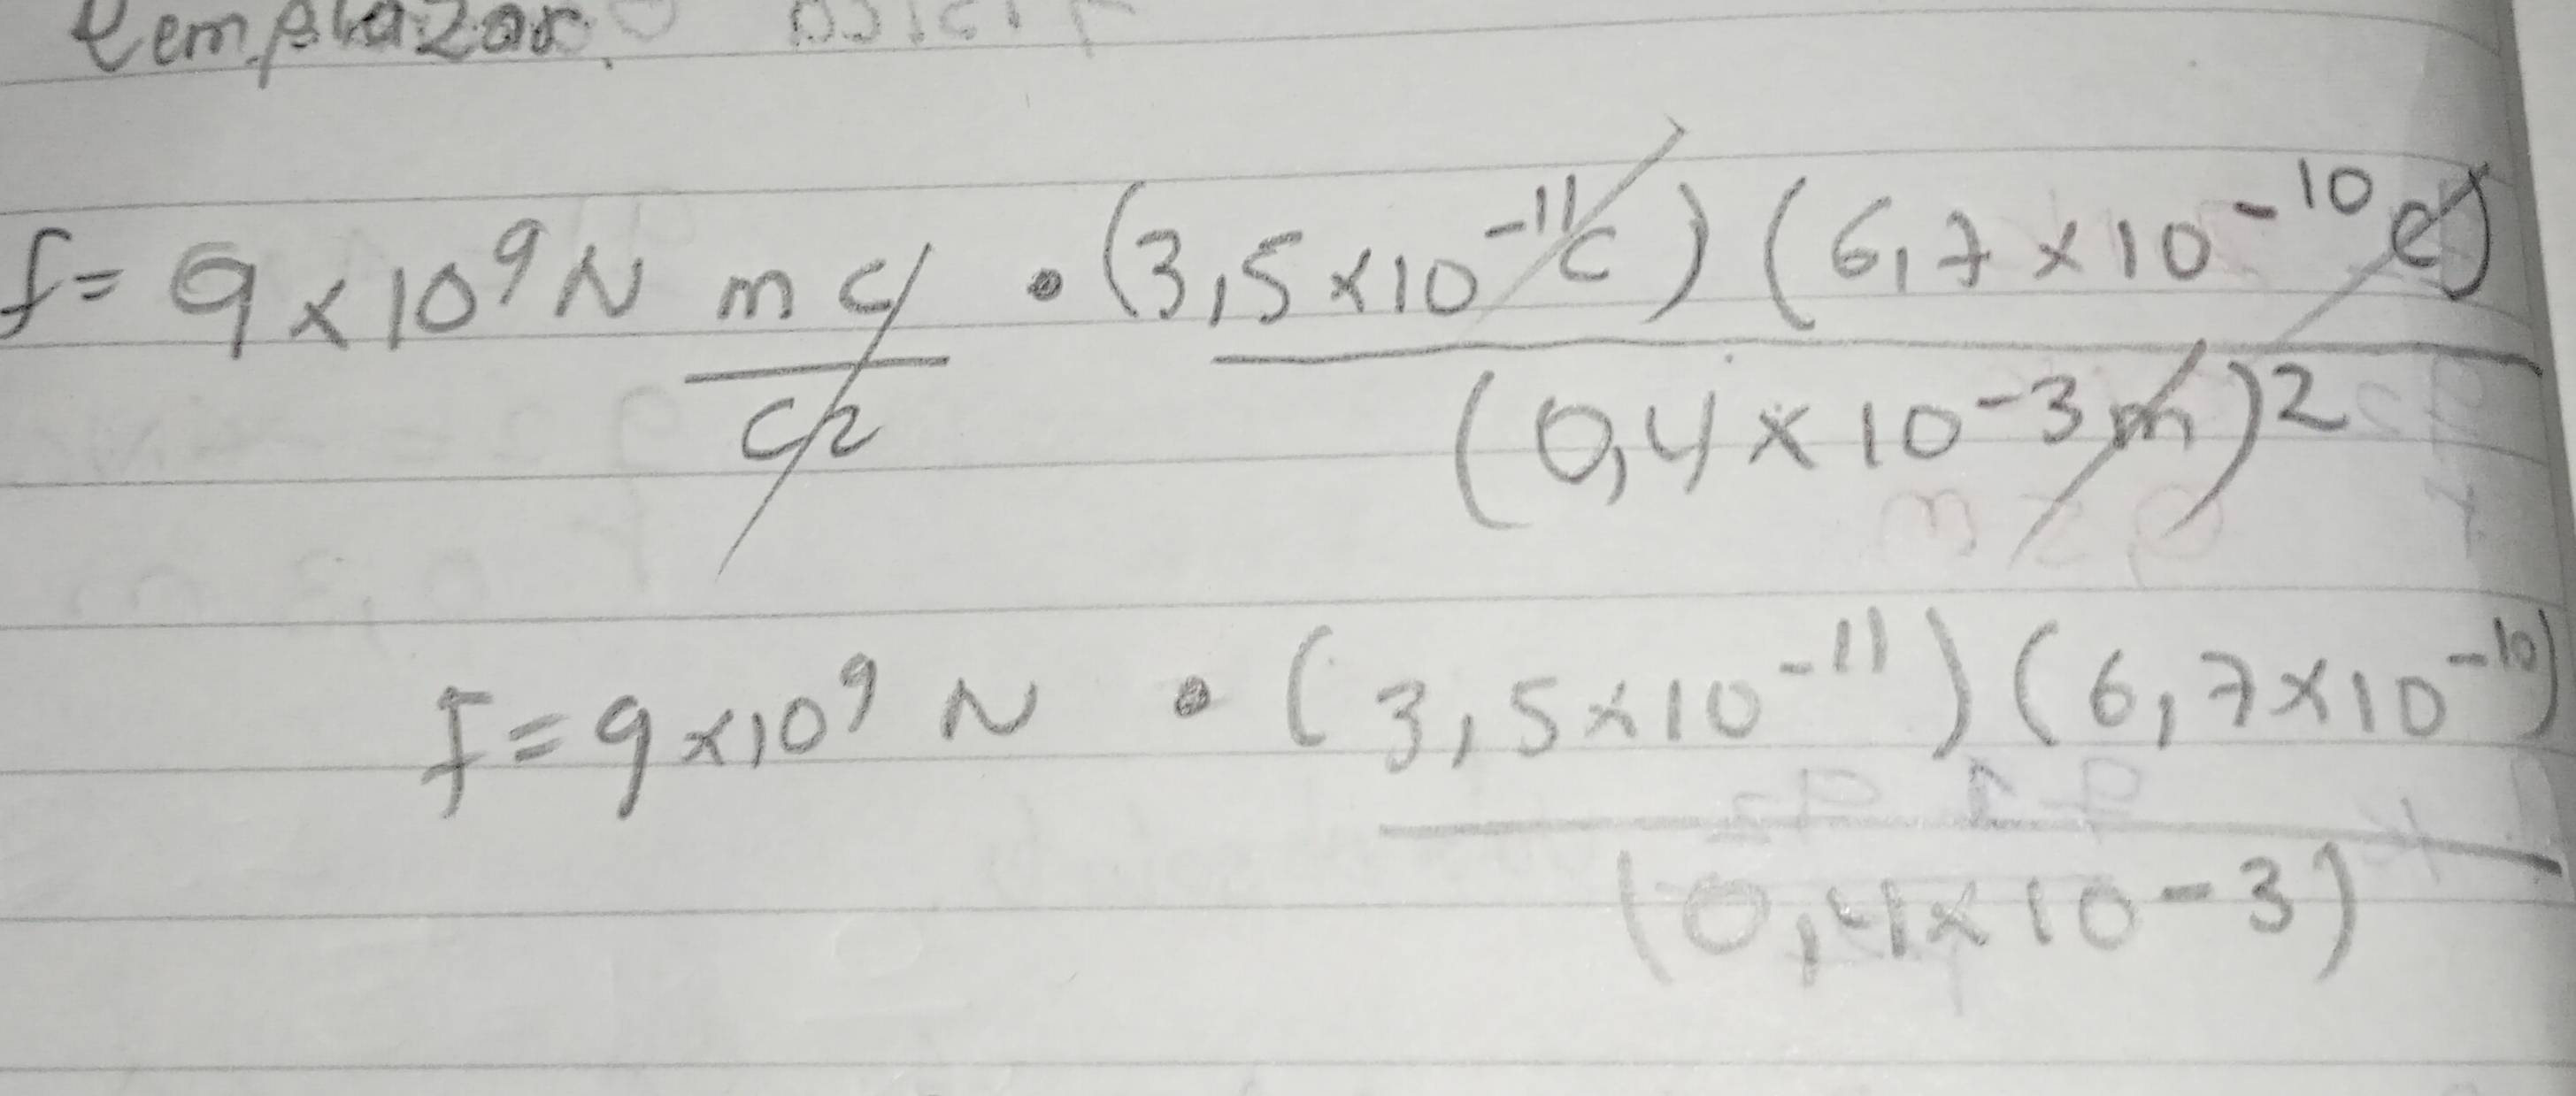 Remplazar
f= 9x10⁹ N mc/c2 • (3,5x10⁻¹¹c) (6,7x10⁻¹⁰c) / (0,4x10⁻³m)²
F=9x10⁹ N • (3,5x10⁻¹¹) (6,7x10⁻¹⁰) / (0,4x10-3)